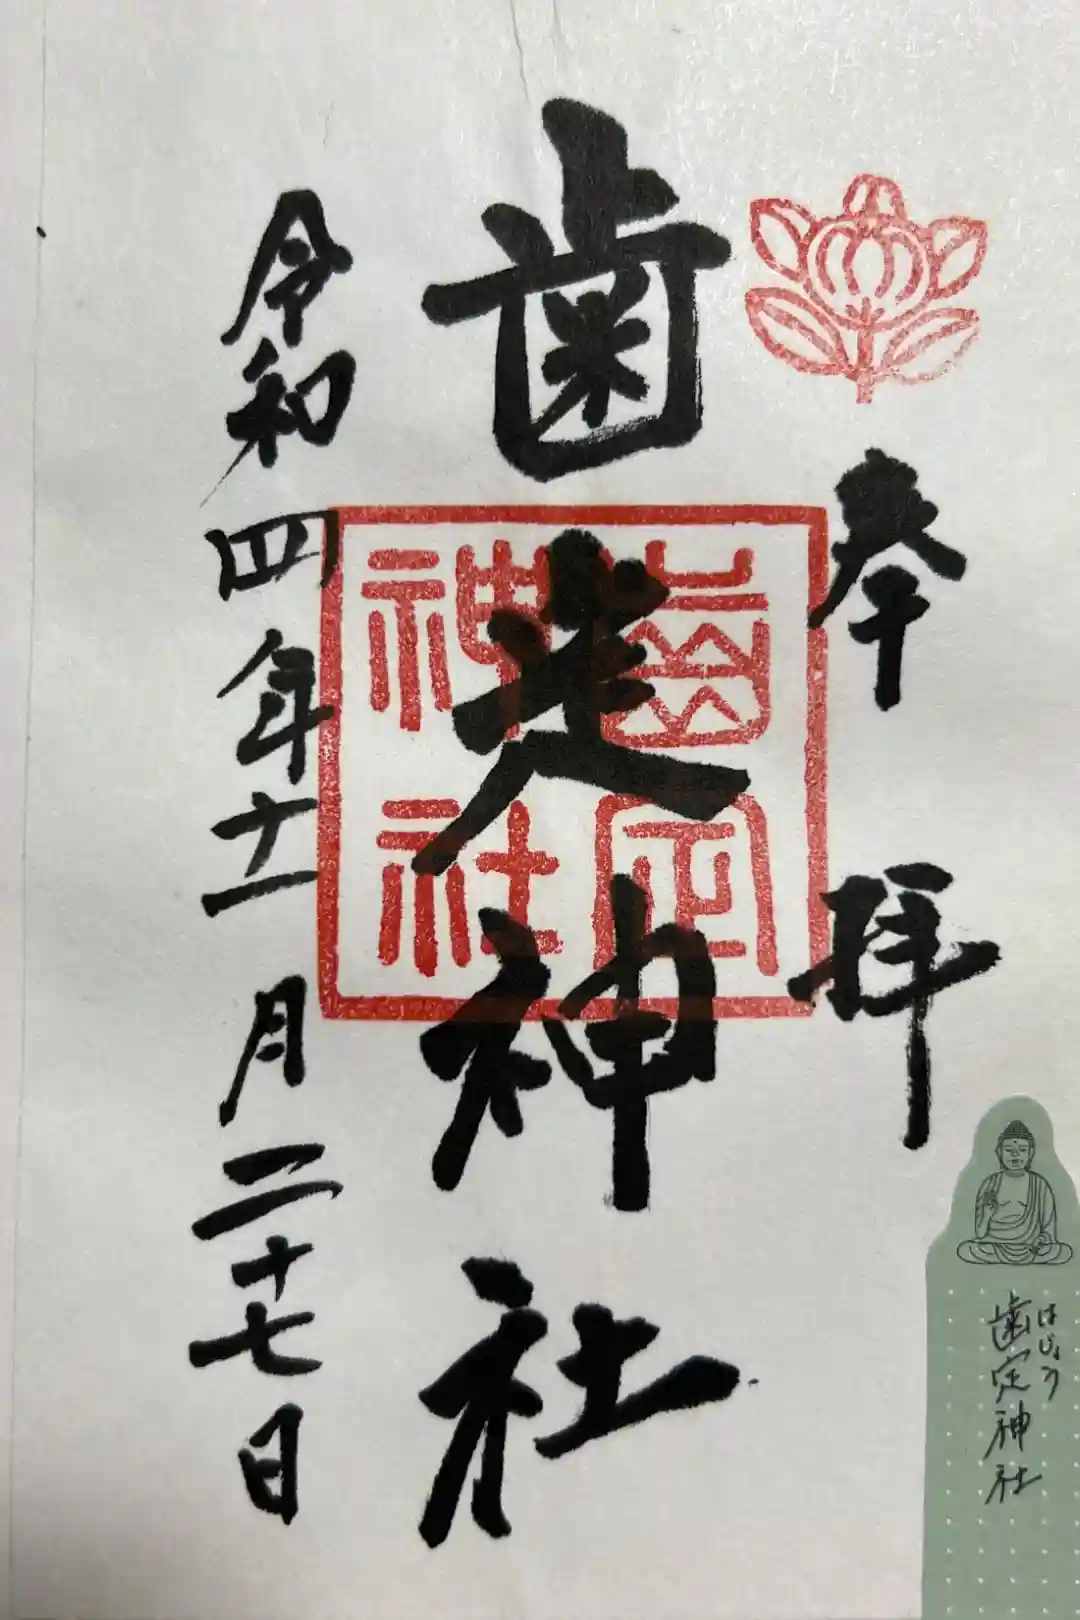 奉拝
歯定神社
歯定
神社
令和四年十一月二十七日
はじょう
歯定神社